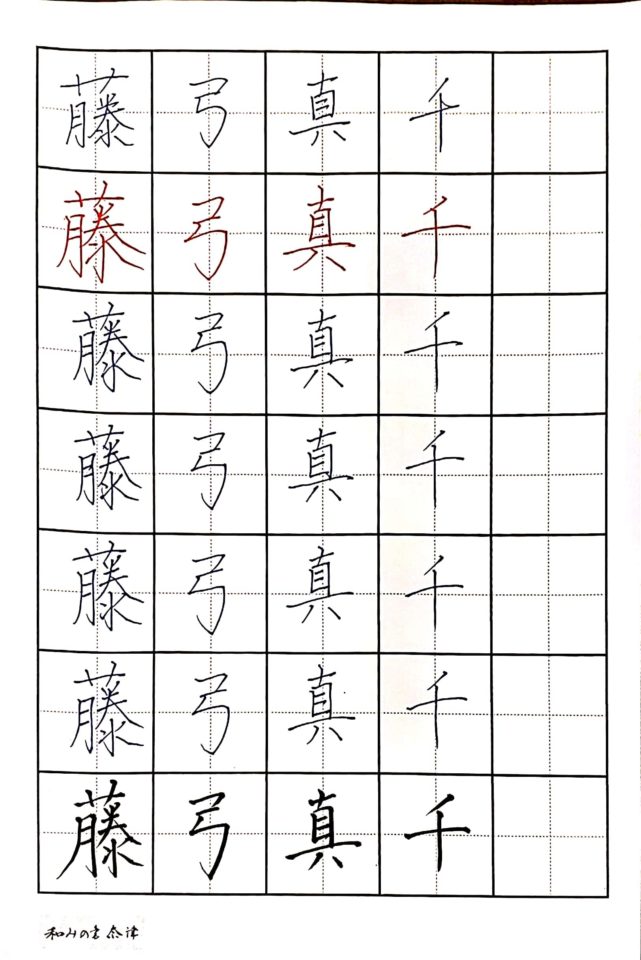 藤 弓 真 千
藤 弓 真 千
藤 弓 真 千
藤 弓 真 千
藤 弓 真 千
藤 弓 真 千
藤 弓 真 千
和みの書 奈津